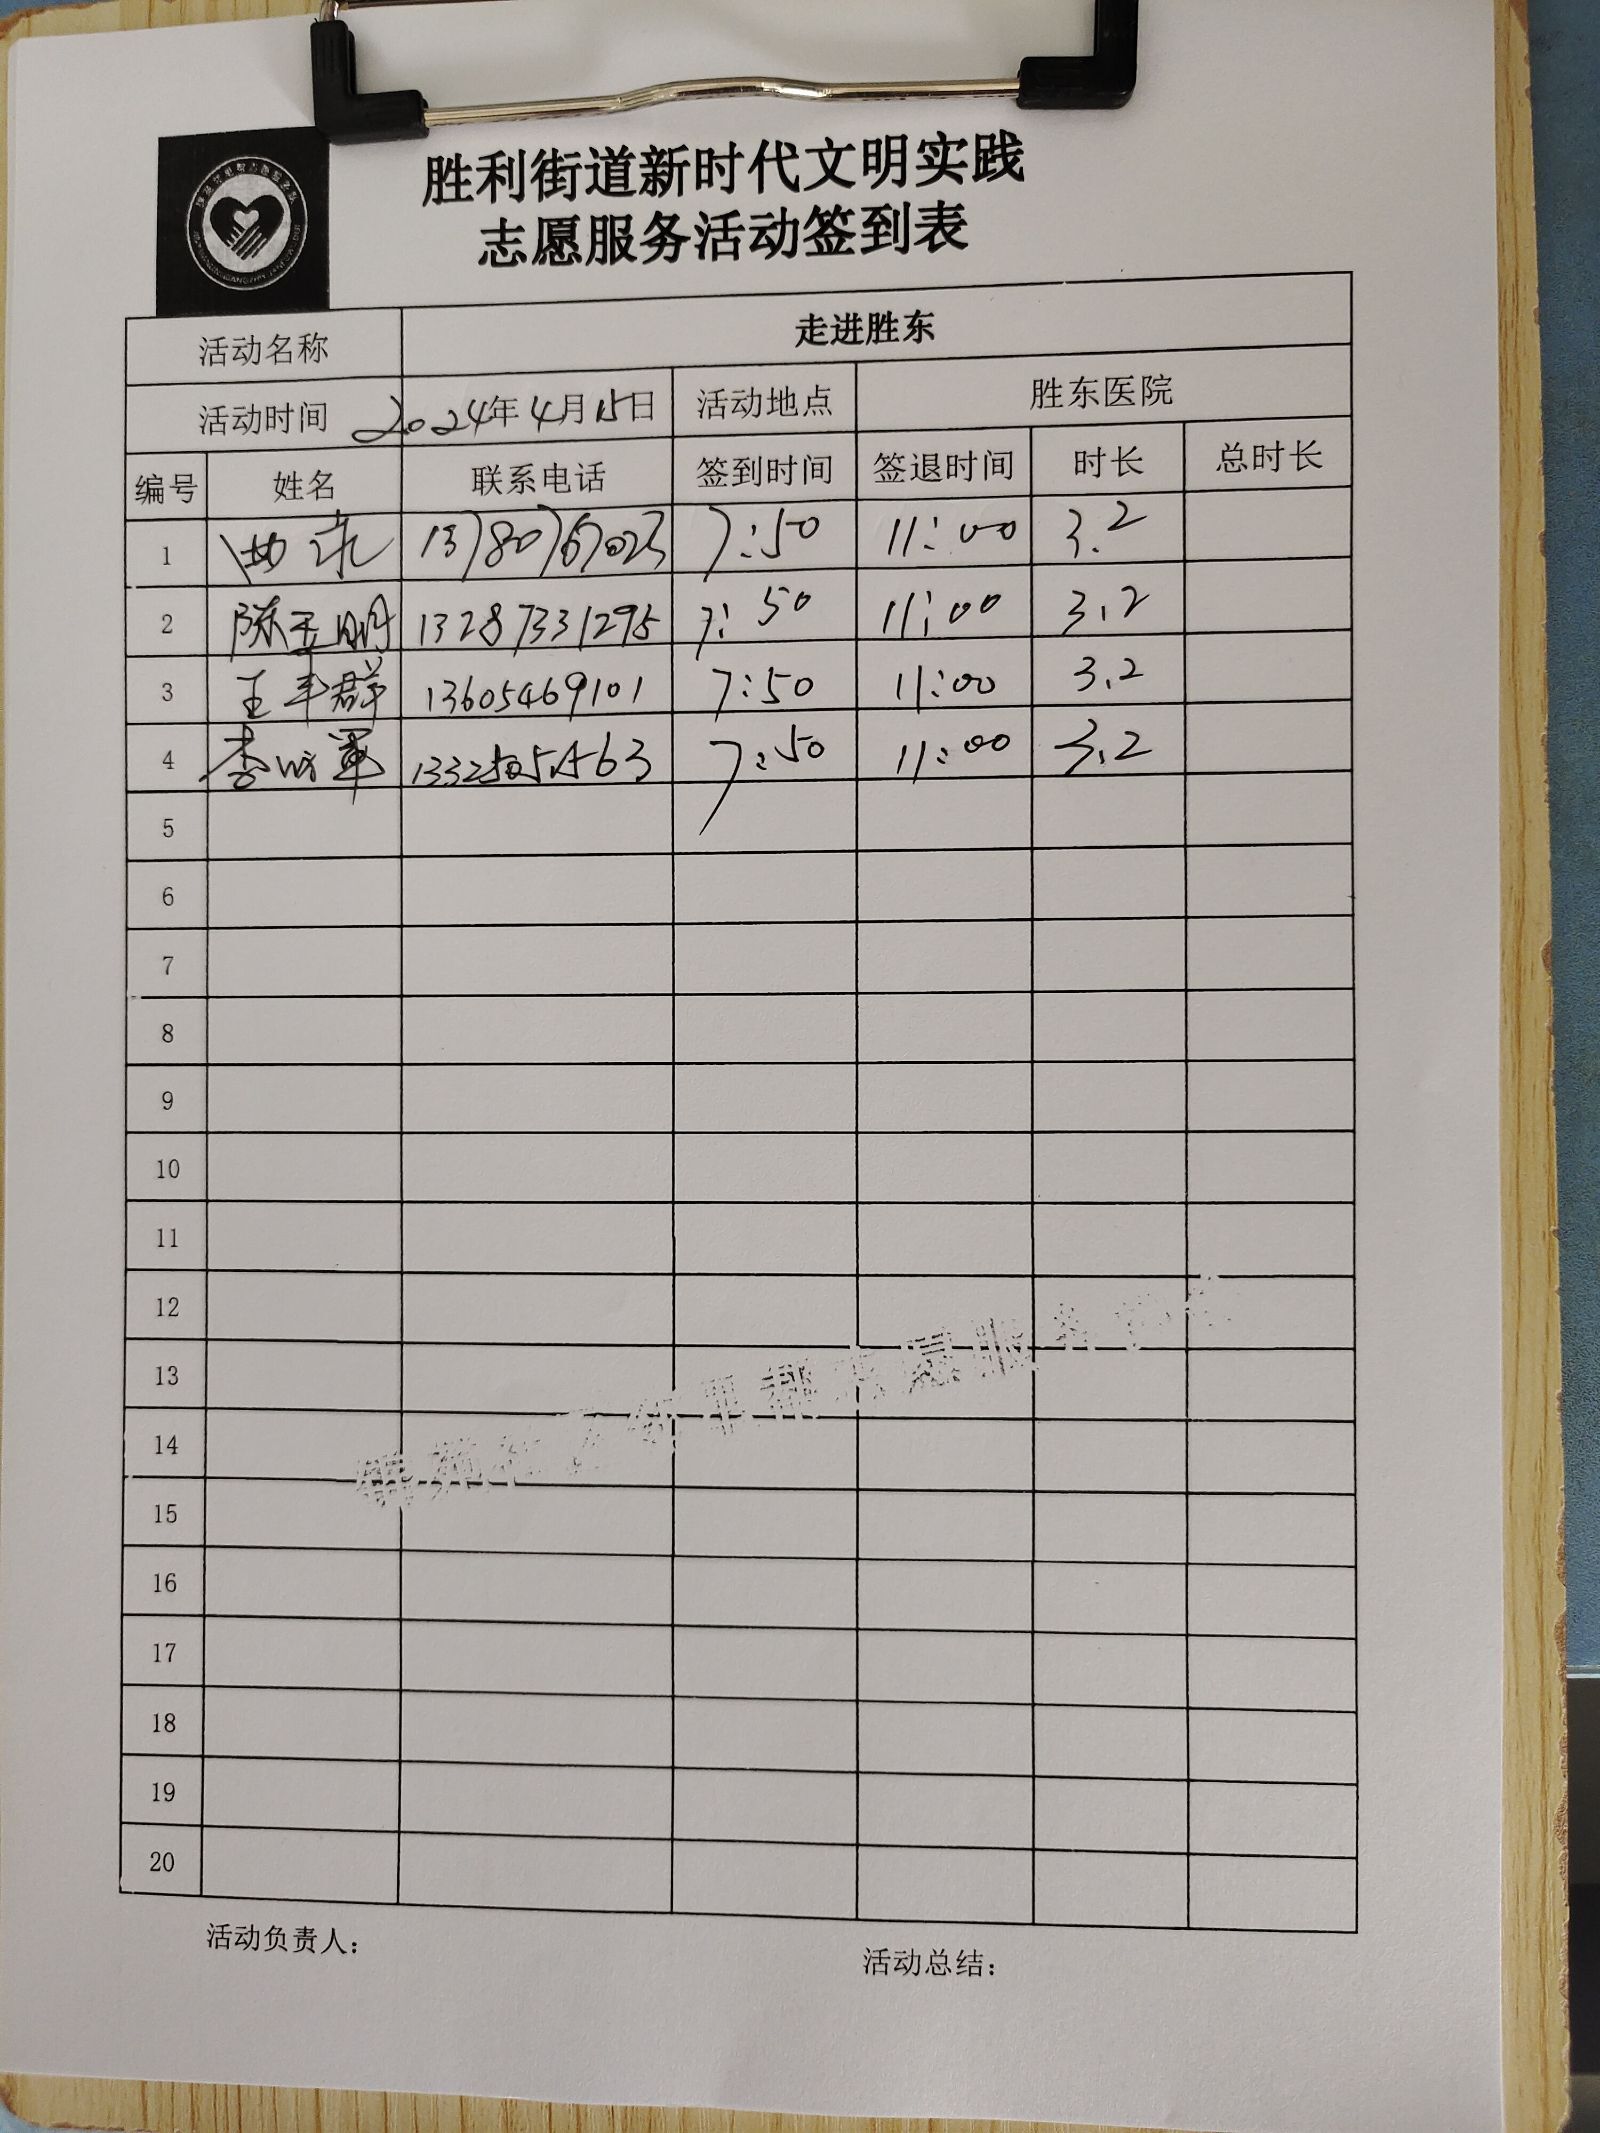 胜利街道新时代文明实践
志愿服务活动签到表
活动名称 走进胜东
活动时间 2024年4月15日 活动地点 胜东医院
编号 姓名 联系电话 签到时间 签退时间 时长 总时长
1 7:50 11:00 3.2
2 陈玉明 13287331295 7:50 11:00 3.2
3 王丰群 13605469101 7:50 11:00 3.2
4 7:50 11:00 3.2
5
6
7
8
9
10
11
12
13
14
15
16
17
18
19
20
活动负责人：
活动总结：